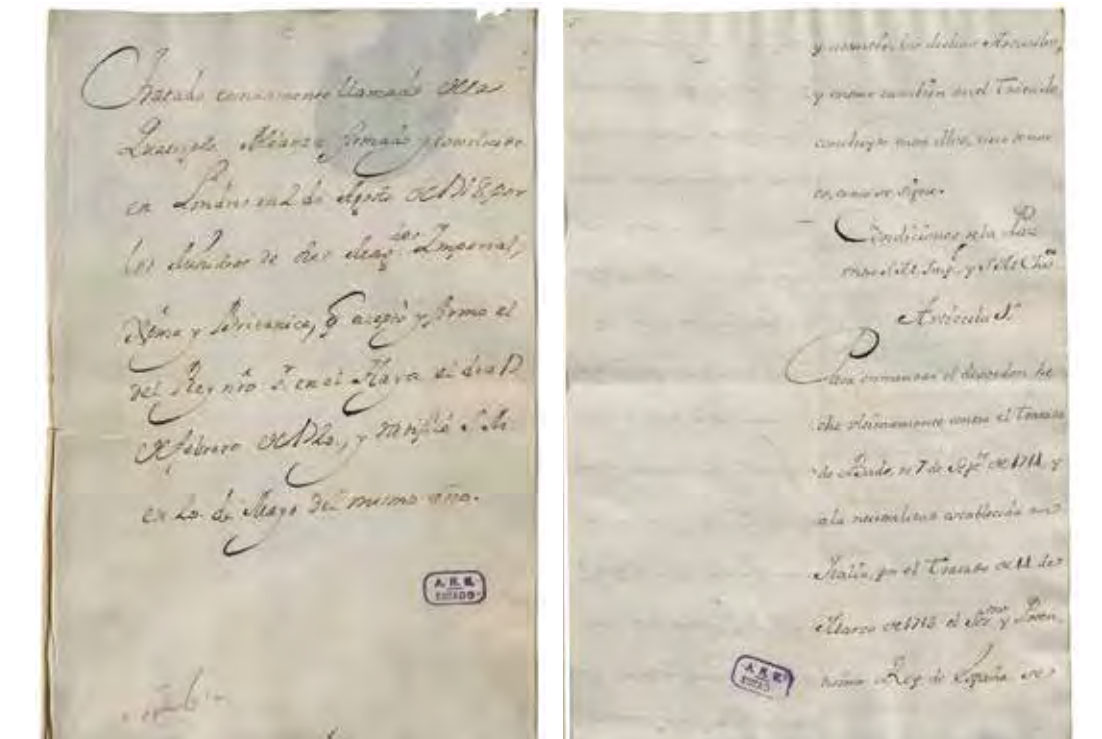 Tratado comunmente llamado de la
Quadruple Alianza firmado y concluido
en Londres en 2 de Agosto de 1718 por
los Ministros de Sus Mag.des Imperial,
Xtma y Britanica, q acepto y firmo el
del Rey nro S.r en el Haya el dia 17
de febrero de 1720, y ratificó S. M.
en 20 de Mayo del mismo año.
A. H. N.
ESTADO
y como tambien en el Tratado
co, como se sigue.
Condiciones de la Paz
entre S. M. Imp. y S. M. Cha
Articulo 1.
Para enmendar el desorden he
cho ultimamente contra el Tratado
de Bade, de 7 de Sep.re de 1714, y
a la neutralidad establecida en
Italia, por el Tratado de 14 de
Marzo de 1713 el Ser.mo y Poten
tisimo Rey de España se
A. H. N.
ESTADO